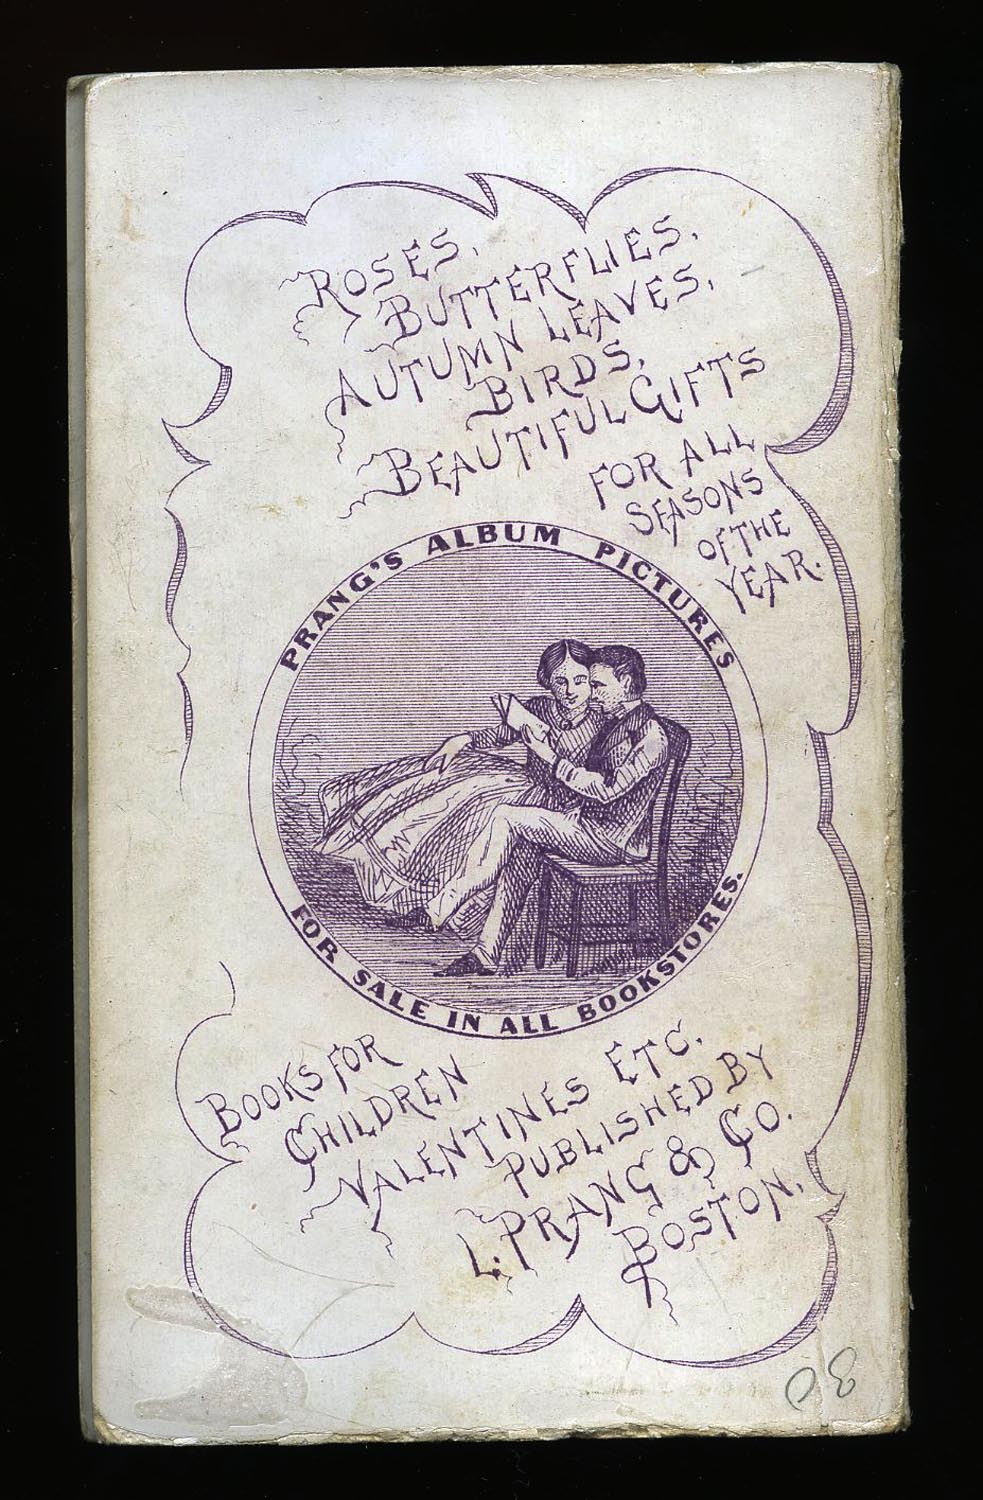 ROSES,
BUTTERFLIES,
AUTUMN LEAVES,
BIRDS,
BEAUTIFUL GIFTS
FOR ALL
SEASONS
OF THE
YEAR.
PRANG'S ALBUM PICTURES
FOR SALE IN ALL BOOKSTORES.
BOOKS FOR
CHILDREN
VALENTINES ETC.
PUBLISHED BY
L. PRANG & CO.
BOSTON.